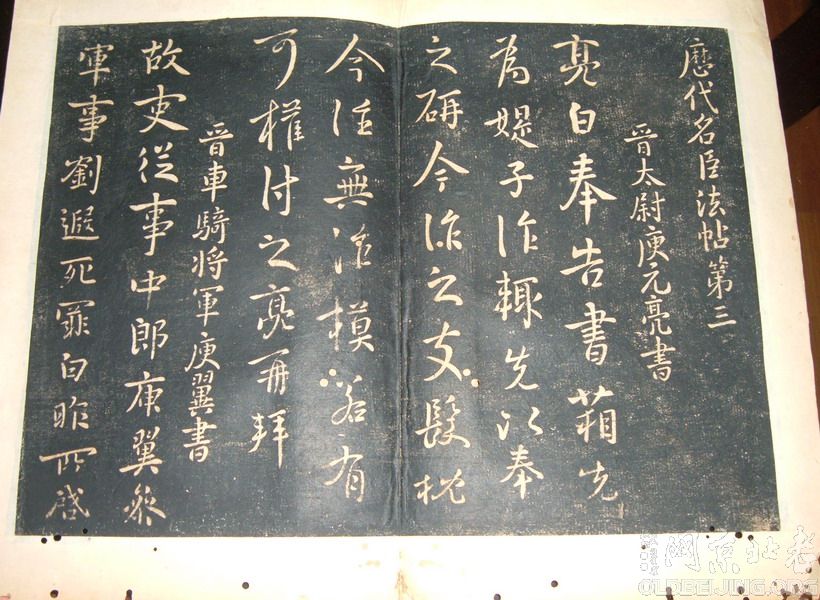 歷代名臣法帖第三
晉太尉庾元亮書
亮白奉告書葙先
為媞子作輒先以奉
之研今作之支髮枕
今往無模若有
可權付之亮再拜
晉車騎將軍庾翼書
故吏從事中郎庾翼參
軍事劉遐死罪白昨所啓
老北京网
OLDBEIJING.ORG